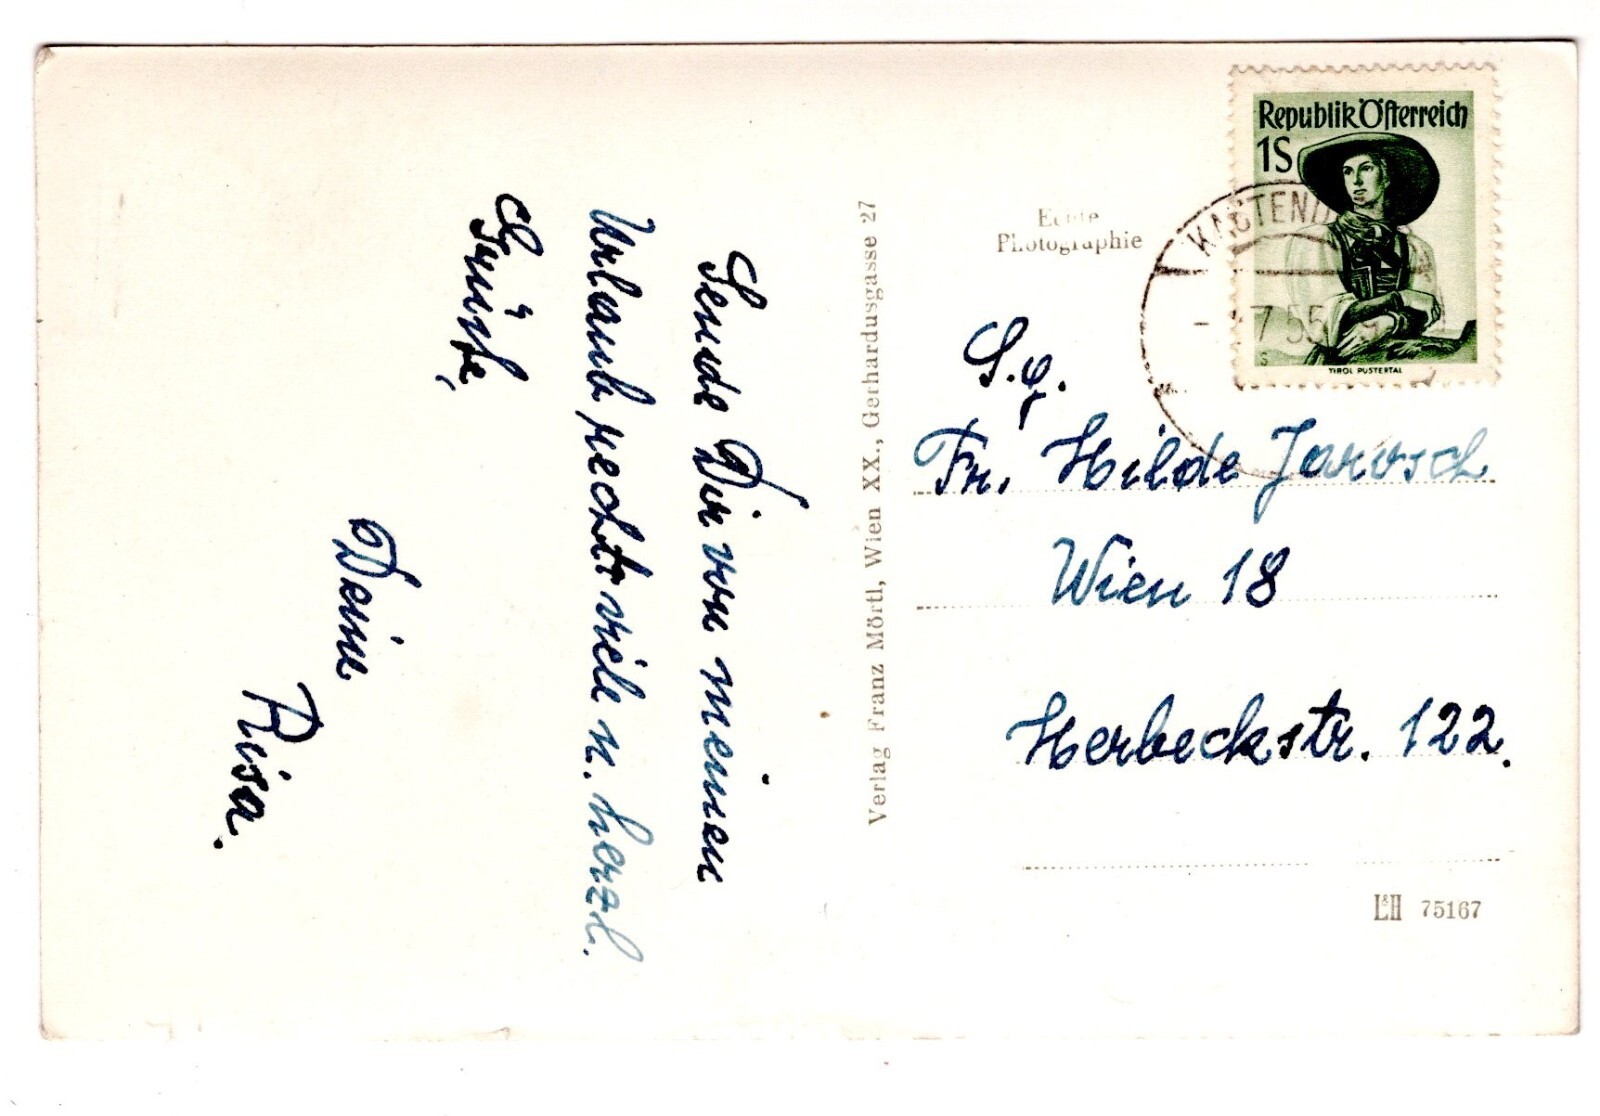 Sende Dir von meinem
Urlaub recht viele u. herzl.
Grüße,
Deine
Risa.
Verlag Franz Mörtl, Wien XX., Gerhardusgasse 27
Echte
Photographie
Republik Österreich
1S
TIROL PUSTERTAL
7 55
Fr. Hilde Jarosch
Wien 18
Herbeckstr. 122.
L&H 75167